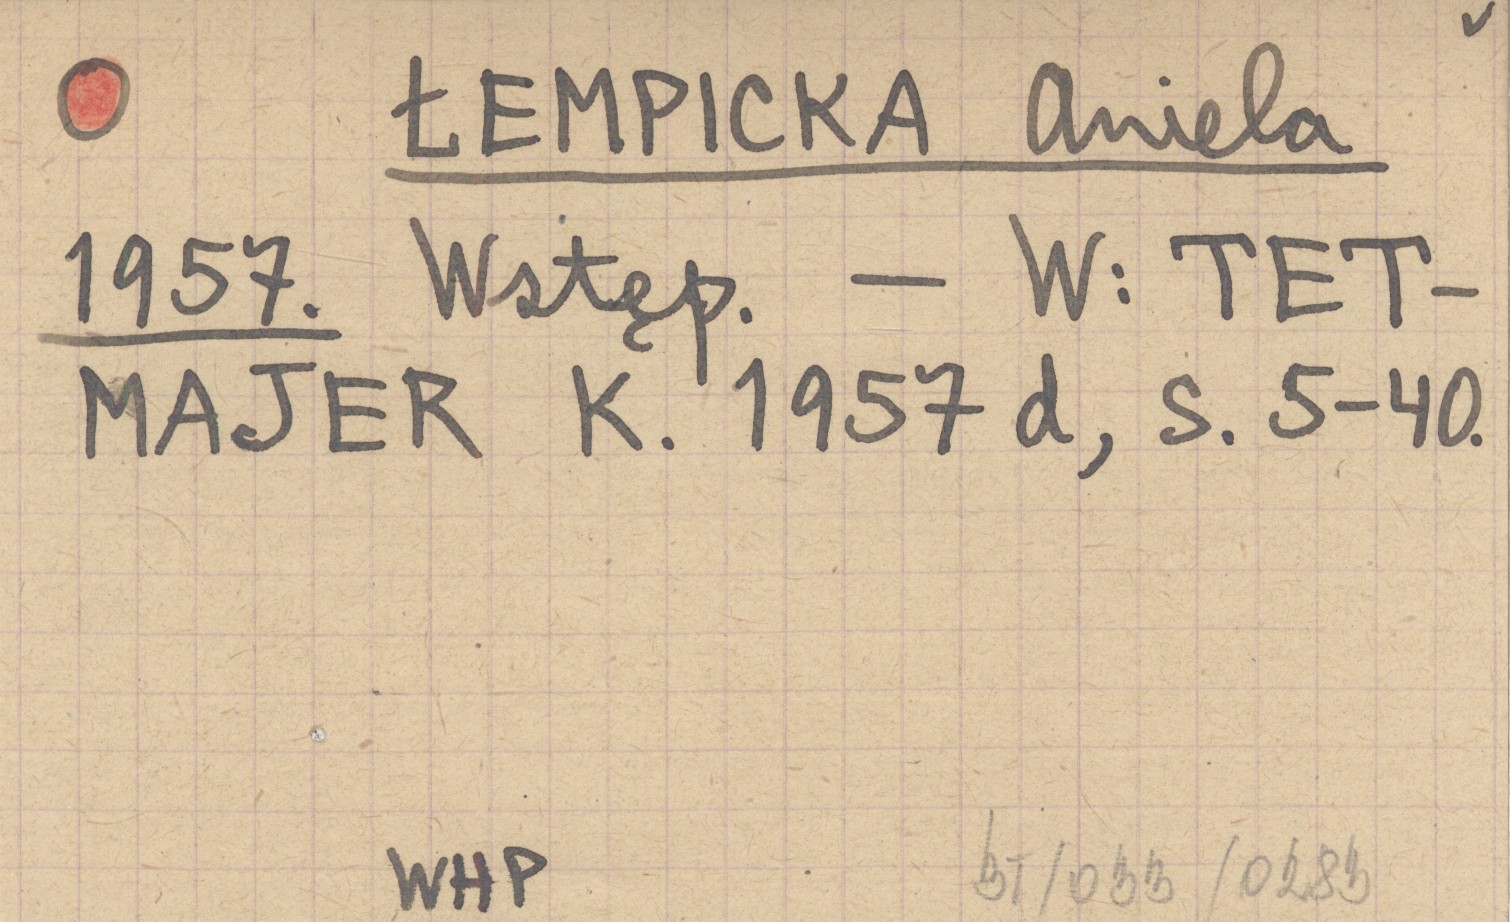 ŁEMPICKA Aniela
1957. Wstęp. — W: TET-
MAJER K. 1957 d, s. 5-40.
WHP